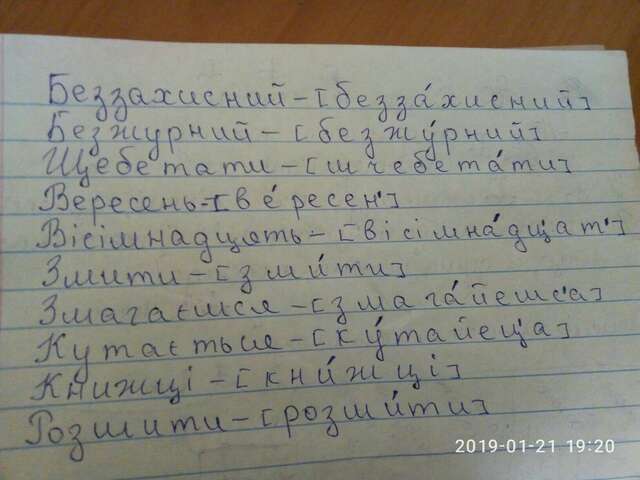 Беззахисний-[безза́хисний]
Безжурний-[безжу́рний]
Щебетати-[шчебета́ти]
Вересень-[ве́ресен']
Вісімнадцять-[вісімна́дц'ат']
Змити-[зми́ти]
Змагаєшся-[змага́йешс'а]
Кутається-[ку́тайец'а]
Книжці-[кни́жці]
Розшити-[розши́ти]
2019-01-21 19:20